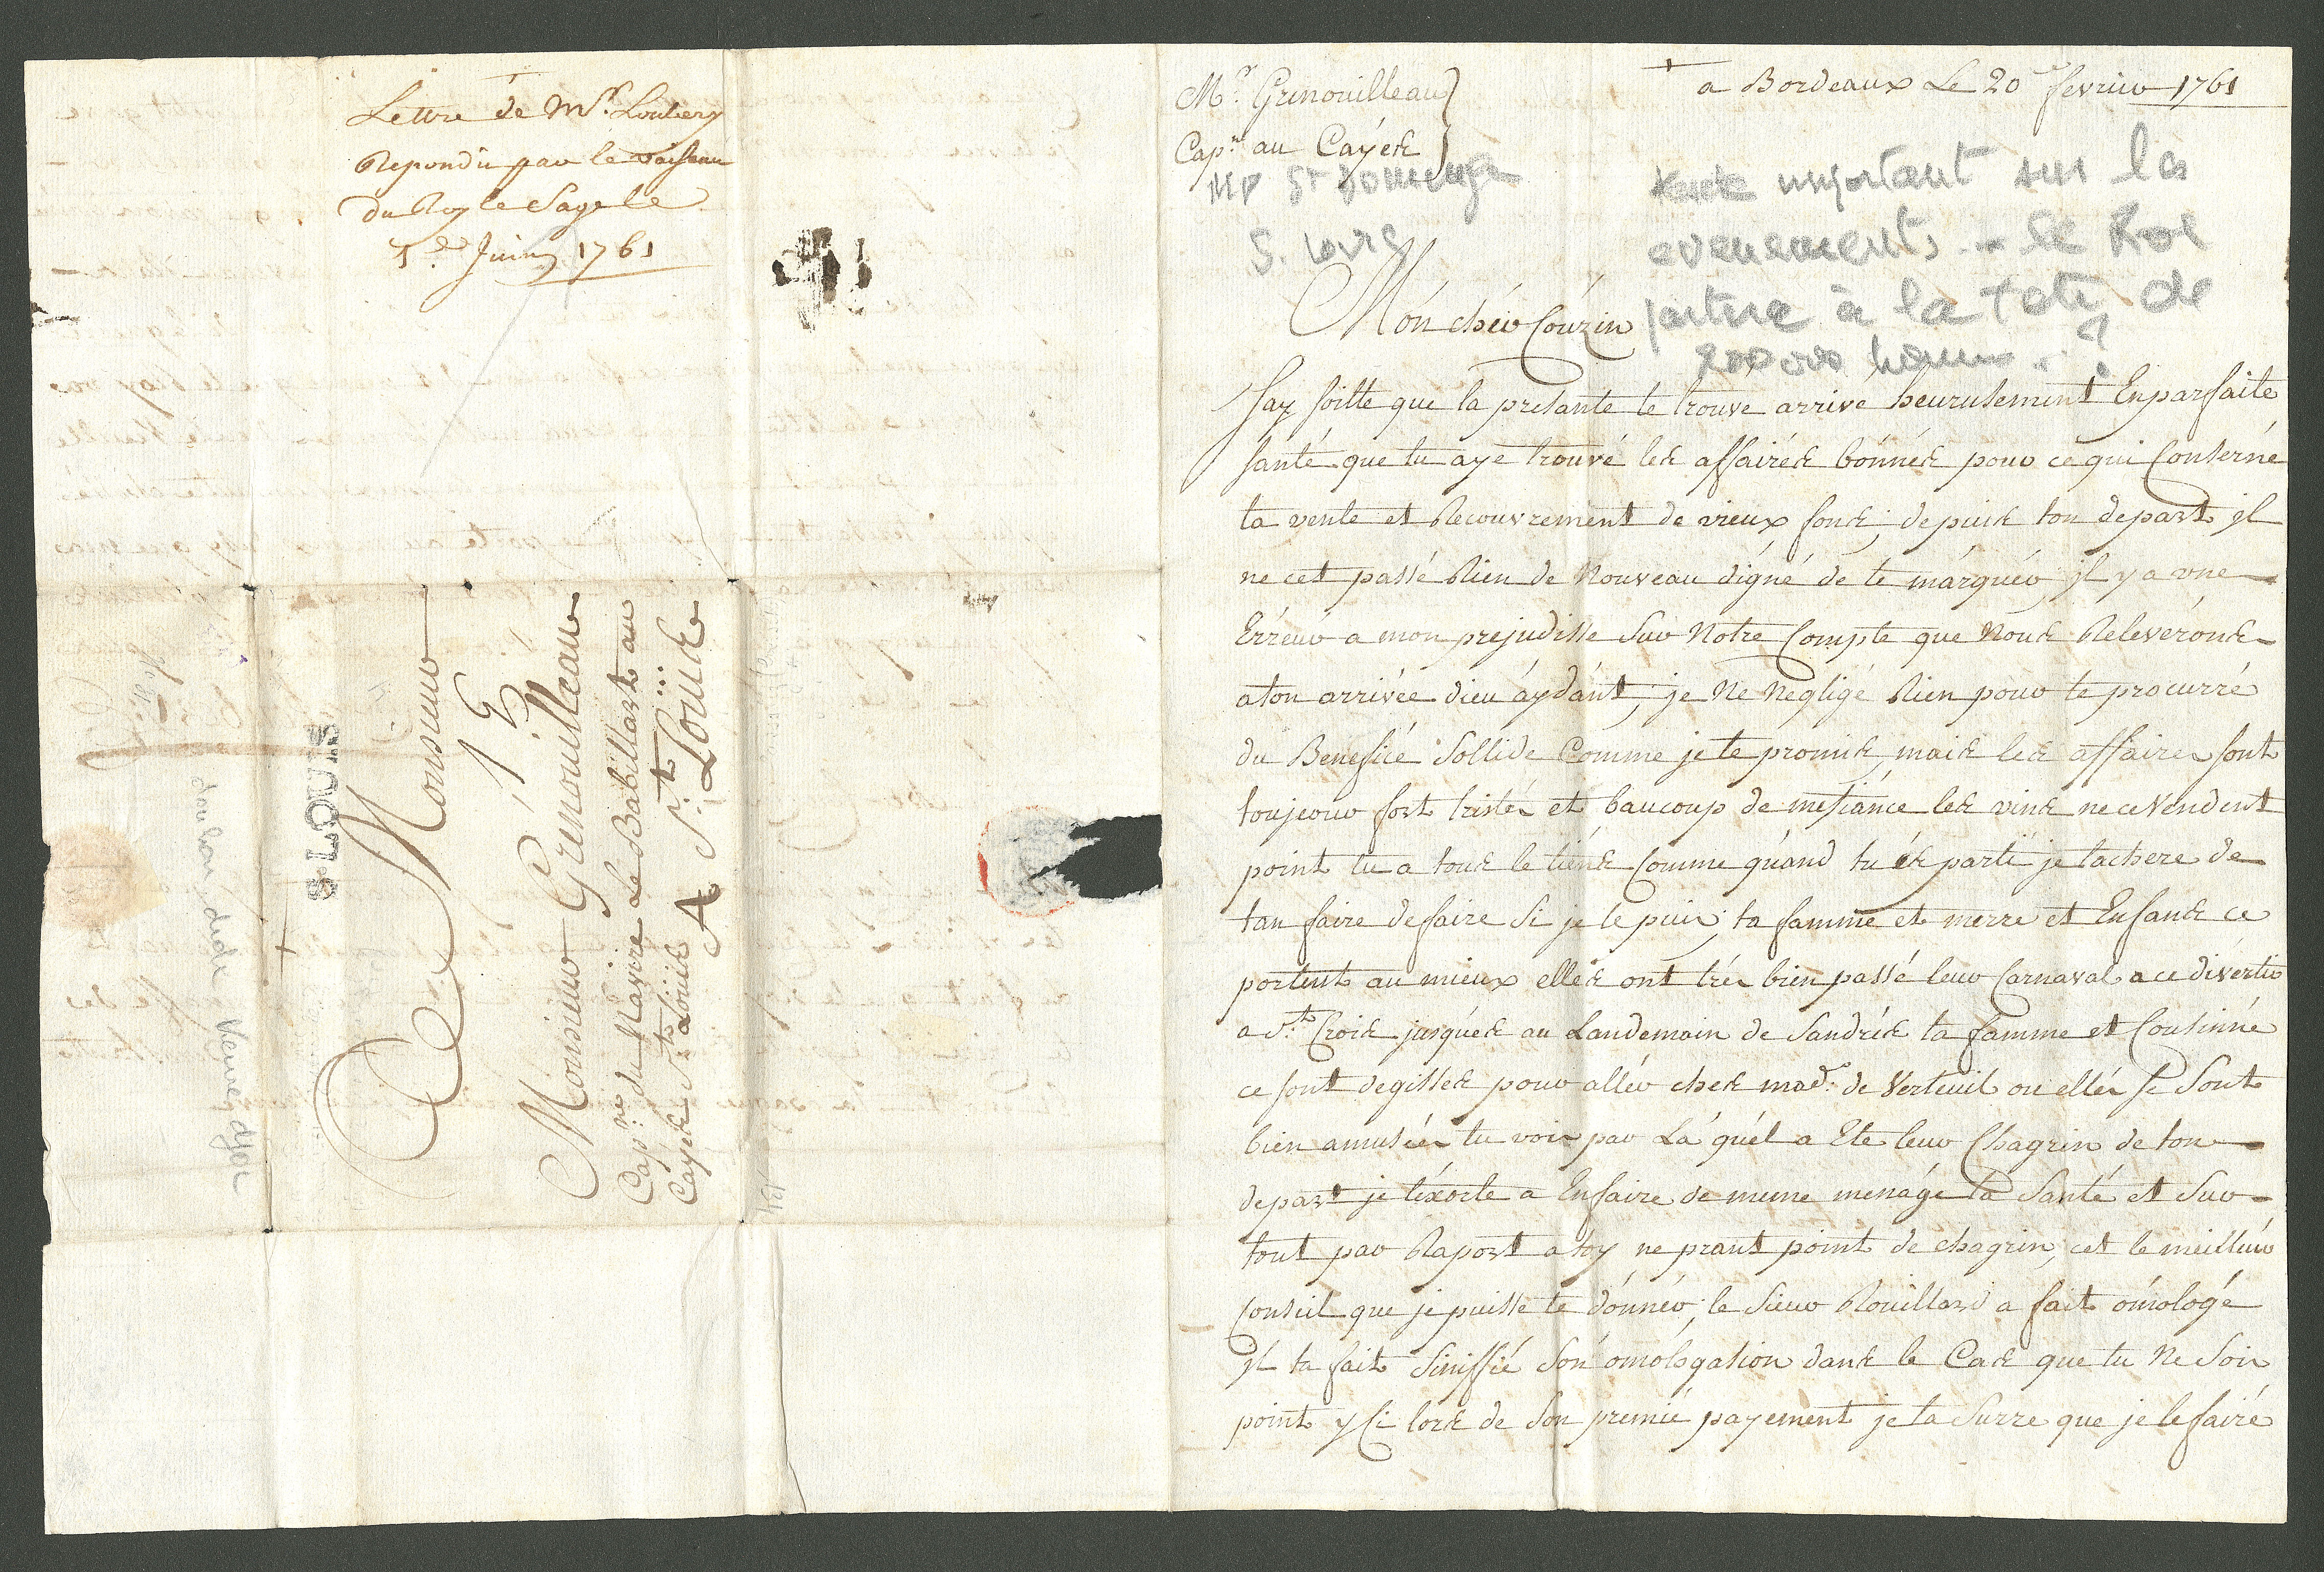 Lettre de Mr. Loubery
Repondu par le vaisseau
du Roy le Sage le
1er Juin 1761
S. LOUIS
A Monsieur
15
Monsieur Grenouilleau
Capne. du Navire Le Babillart au
Cayes St. Louis
A St. Louis
Mr. Grenouilleau
Capne au Cayes
MP St Domingue
S. Louis
a Bordeaux Le 20 fevrier 1761
texte important sur les
evenements... le Roi
partira à la tete de
200 000 hommes..?
Món chér Cóuzin
Jay soitte que la presante te trouve arrivé heurusement En parfaite
santé que tu aye trouvé les affairés bónnés pour ce qui Conserné
ta vente et Recouvrement de vieux fons; depuis ton depart il
ne cet passé Rien de Nouveau digné de te márquér, il y a une
Erréur a mon prejudisse Sur Notre Compte que Nous Releveróns
a ton arrivée dieu áydánt, je Ne Negligé Rien pour te procurré
du Beneficé Sollide Comme je te promis, mais les affaires sont
toujeour fort tristés et baucoup de mefiánce les vins ne ce vendent
point tu a tous le tiéns Comme quánd tu és parti je tachere de
tan faire defaire Si je le puis; ta famme et merre et Enfans ce
portent au mieux elles ont trés bien passé leur Carnaval a ce divértir
a St. Crois jusqués au Landemain de Sandrés ta famme et Cousinne
ce sont degisses pour allér ches made. de Verteuil ou elles se Sont
bien amusées tu vois par La quél a Ete leur Chagrin de ton
depart je téxorte a En faire de meme menáge ta Santé et Sur
tout par Raport a toy ne prant point de chagrin, cet le meilleur
Conseil que je puisse te dónnér; le Sieur Rouillard a fait ómologé
il ta fait Sinifié Són omologation dans le Cas que tu Ne Sois
point y Ci lors de Son premié payement je ta Surre que je le fairé